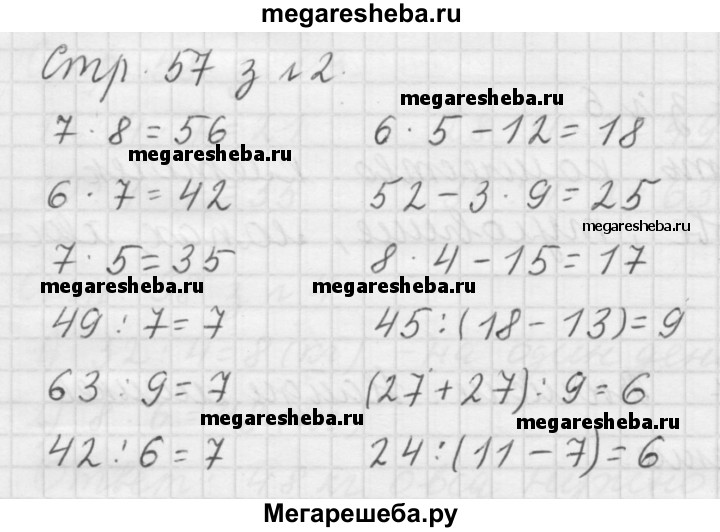 megaresheba.ru
Стр. 57 з №2.
megaresheba.ru
7 · 8 = 56 6 · 5 - 12 = 18
megaresheba.ru
6 · 7 = 42 52 - 3 · 9 = 25
megaresheba.ru
7 · 5 = 35 8 · 4 - 15 = 17
megaresheba.ru megaresheba.ru
49 : 7 = 7 45 : (18 - 13) = 9
63 : 9 = 7 (27 + 27) : 9 = 6
megaresheba.ru megaresheba.ru
42 : 6 = 7 24 : (11 - 7) = 6
Мегарешеба.ру